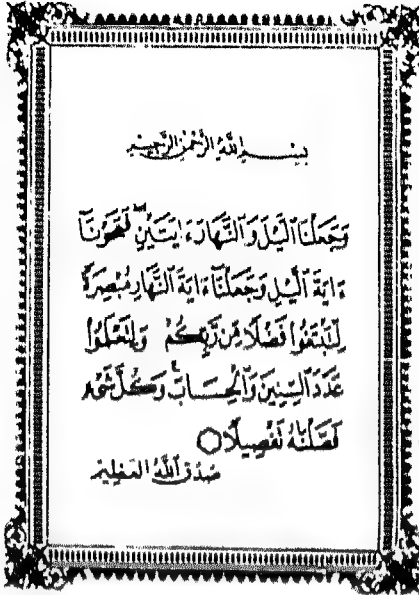 بِسْمِ اللَّهِ الرَّحْمَٰنِ الرَّحِيمِ
وَجَعَلْنَا ٱلَّيْلَ وَٱلنَّهَارَ ءَايَتَيْنِ ۖ فَمَحَوْنَآ
ءَايَةَ ٱلَّيْلِ وَجَعَلْنَآ ءَايَةَ ٱلنَّهَارِ مُبْصِرَةً
لِّتَبْتَغُوا۟ فَضْلًا مِّن رَّبِّكُمْ وَلِتَعْلَمُوا۟
عَدَدَ ٱلسِّنِينَ وَٱلْحِسَابَ ۚ وَكُلَّ شَىْءٍ
فَصَّلْنَٰهُ تَفْصِيلًا
صَدَقَ ٱللَّهُ العَظِيمِ